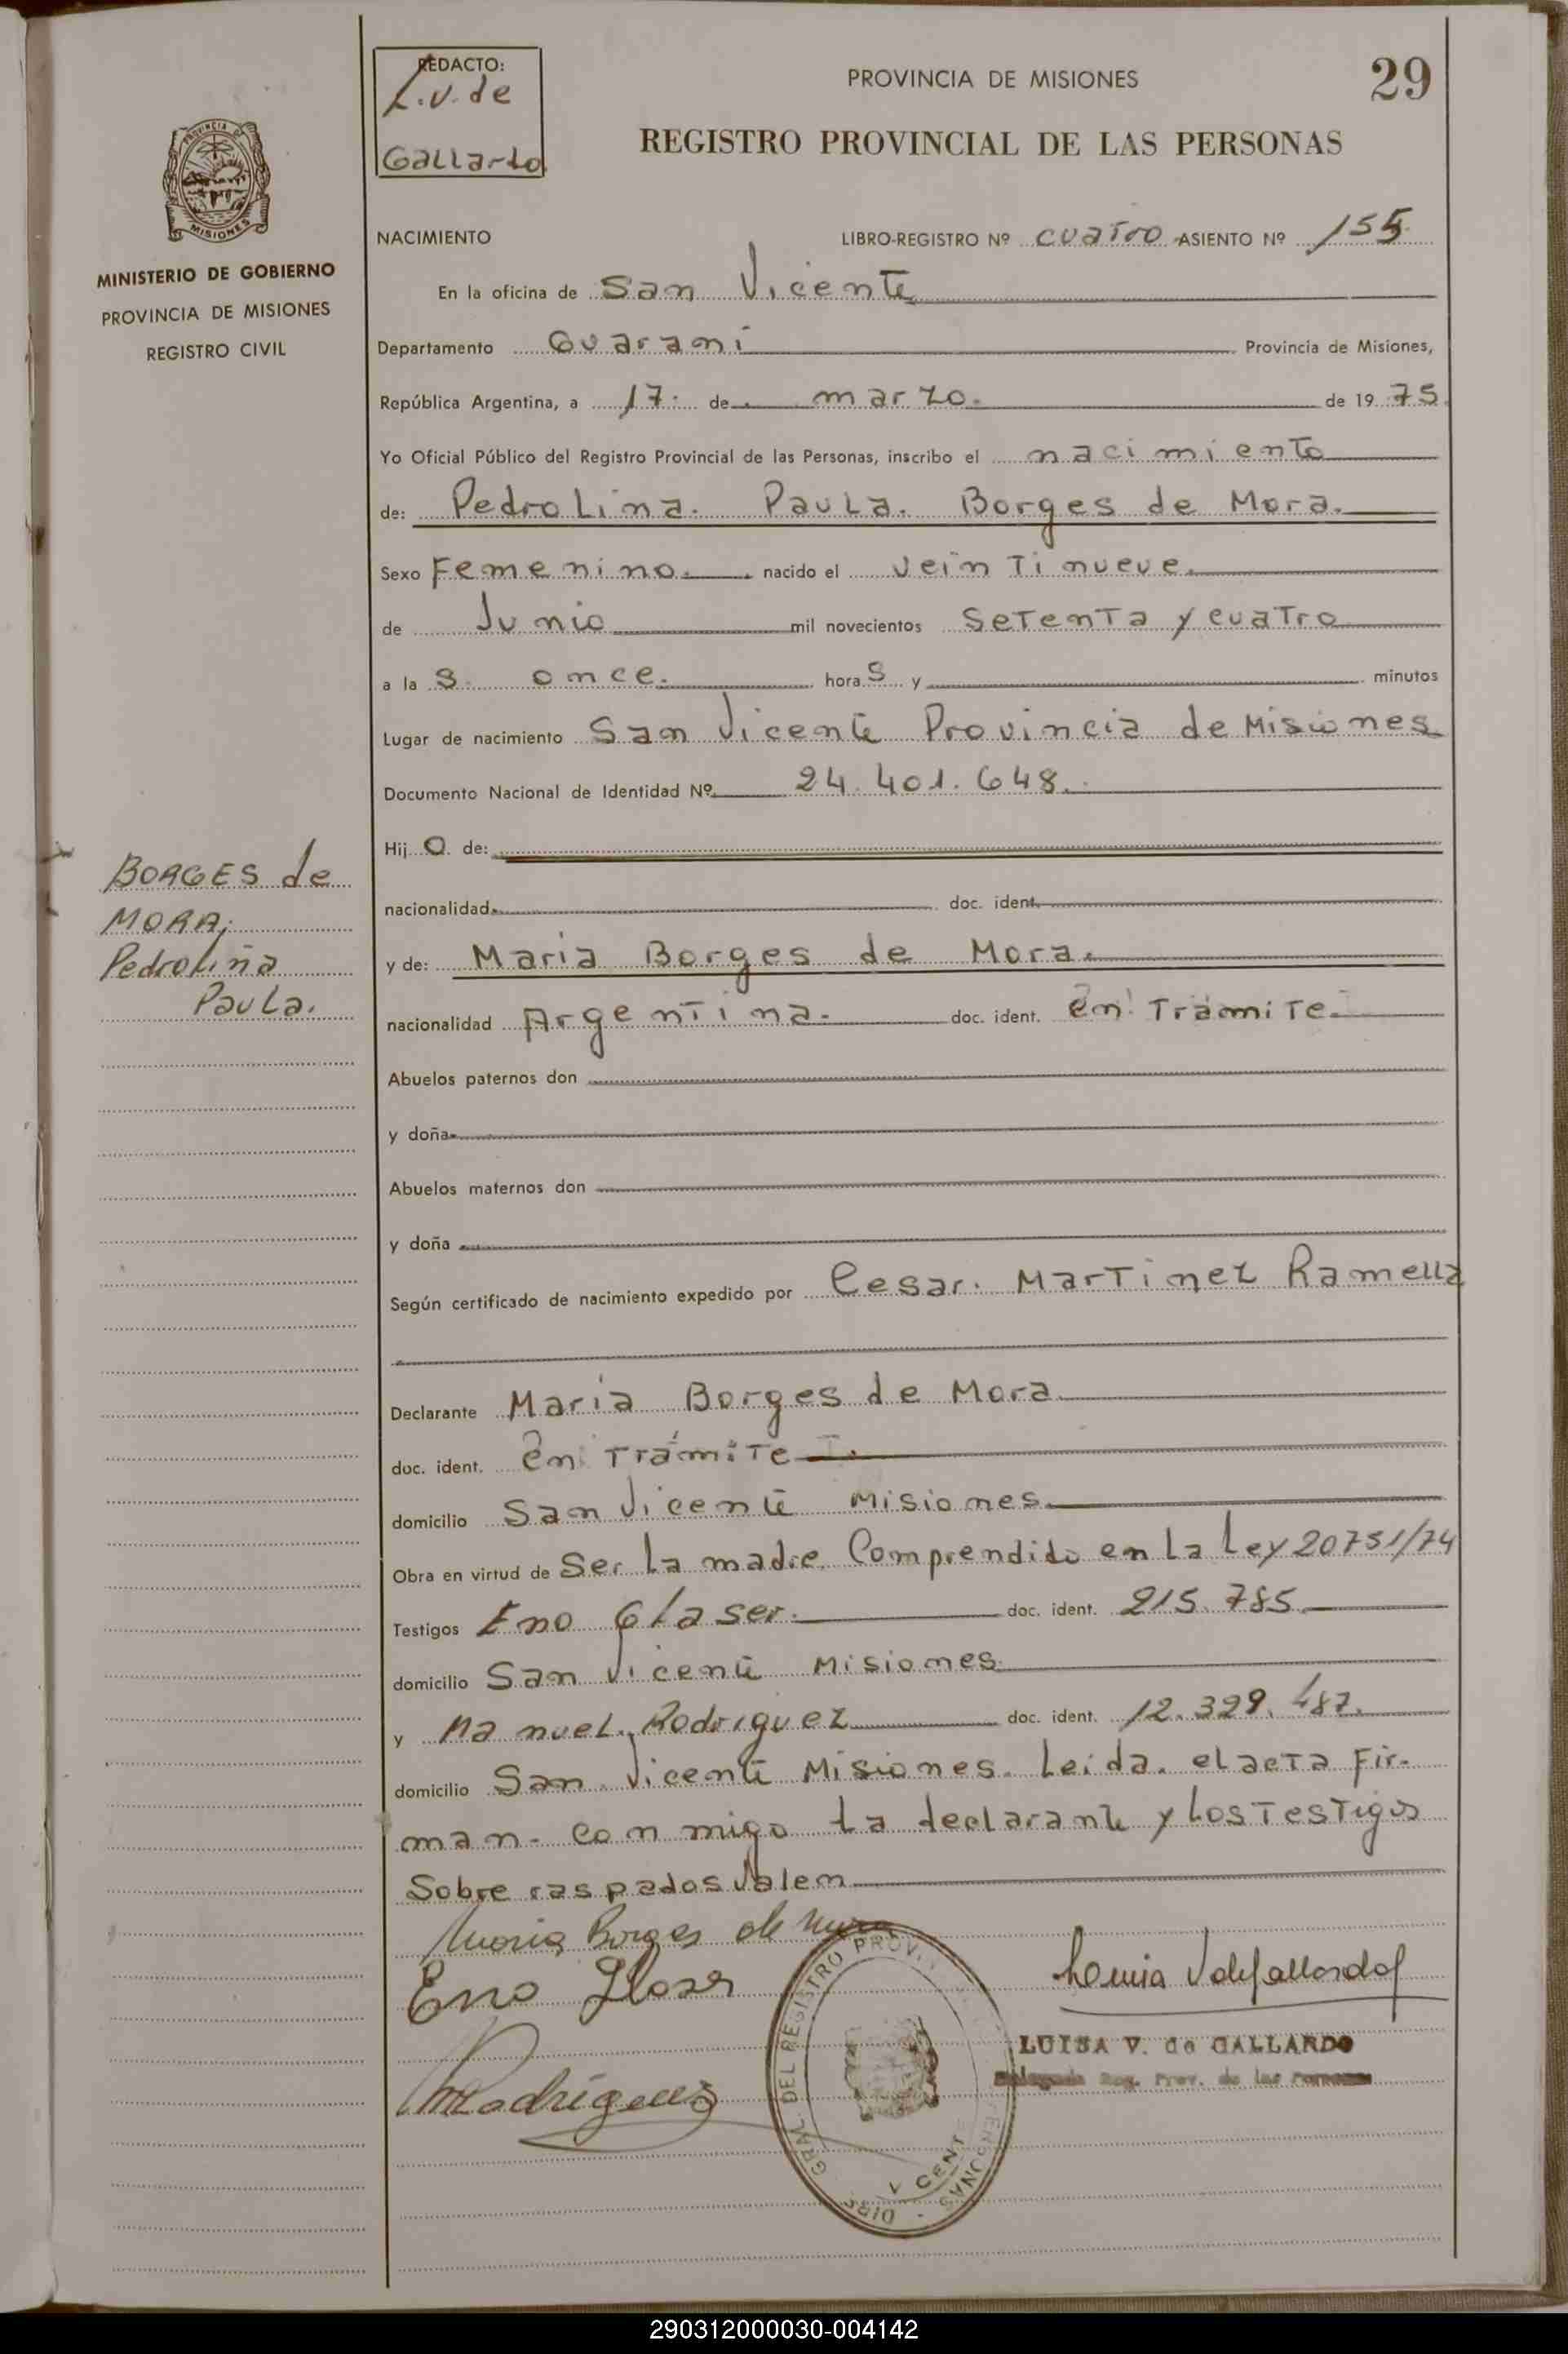 REDACTO:
L.V. de
Gallardo
PROVINCIA DE MISIONES
29
REGISTRO PROVINCIAL DE LAS PERSONAS
PROVINCIA
MISIONES
MINISTERIO DE GOBIERNO
PROVINCIA DE MISIONES
REGISTRO CIVIL
NACIMIENTO LIBRO-REGISTRO Nº cuatro ASIENTO Nº 155
En la oficina de San Vicente
Departamento Guarani Provincia de Misiones,
República Argentina, a 17 de marzo de 1975
Yo Oficial Público del Registro Provincial de las Personas, inscribo el nacimiento
de: PedroLina Paula Borges de Mora.
Sexo Femenino. nacido el veintinueve.
de Junio mil novecientos setenta y cuatro
a las once. horas y minutos
Lugar de nacimiento San Vicente Provincia de Misiones
Documento Nacional de Identidad Nº 24.401.648.
Hijo de:
nacionalidad doc. ident.
y de: Maria Borges de Mora.
nacionalidad Argentina. doc. ident. en Trámite
Abuelos paternos don
y doña
Abuelos maternos don
y doña
Según certificado de nacimiento expedido por Cesar. Martinez Ramella
Declarante Maria Borges de Mora
doc. ident. en Trámite
domicilio San Vicente Misiones
Obra en virtud de Ser la madre Comprendido en la Ley 20751/74
Testigos Eno Glaser. doc. ident. 215.785
domicilio San Vicente Misiones
y Manuel Rodriguez doc. ident. 12.329.487.
domicilio San Vicente Misiones. Leida. el acta Fir-
man- conmigo la declarante y los Testigos
Sobre raspados Valem
BORGES de
MORA;
Pedroliña
Paula.
Maria Borges de Mora
Eno Glaser
MRodriguez
GRAL. DEL REGISTRO PROV.
Luisa V de Gallardo
LUISA V. de GALLARDO
Delegada Reg. Prov. de las Personas
290312000030-004142